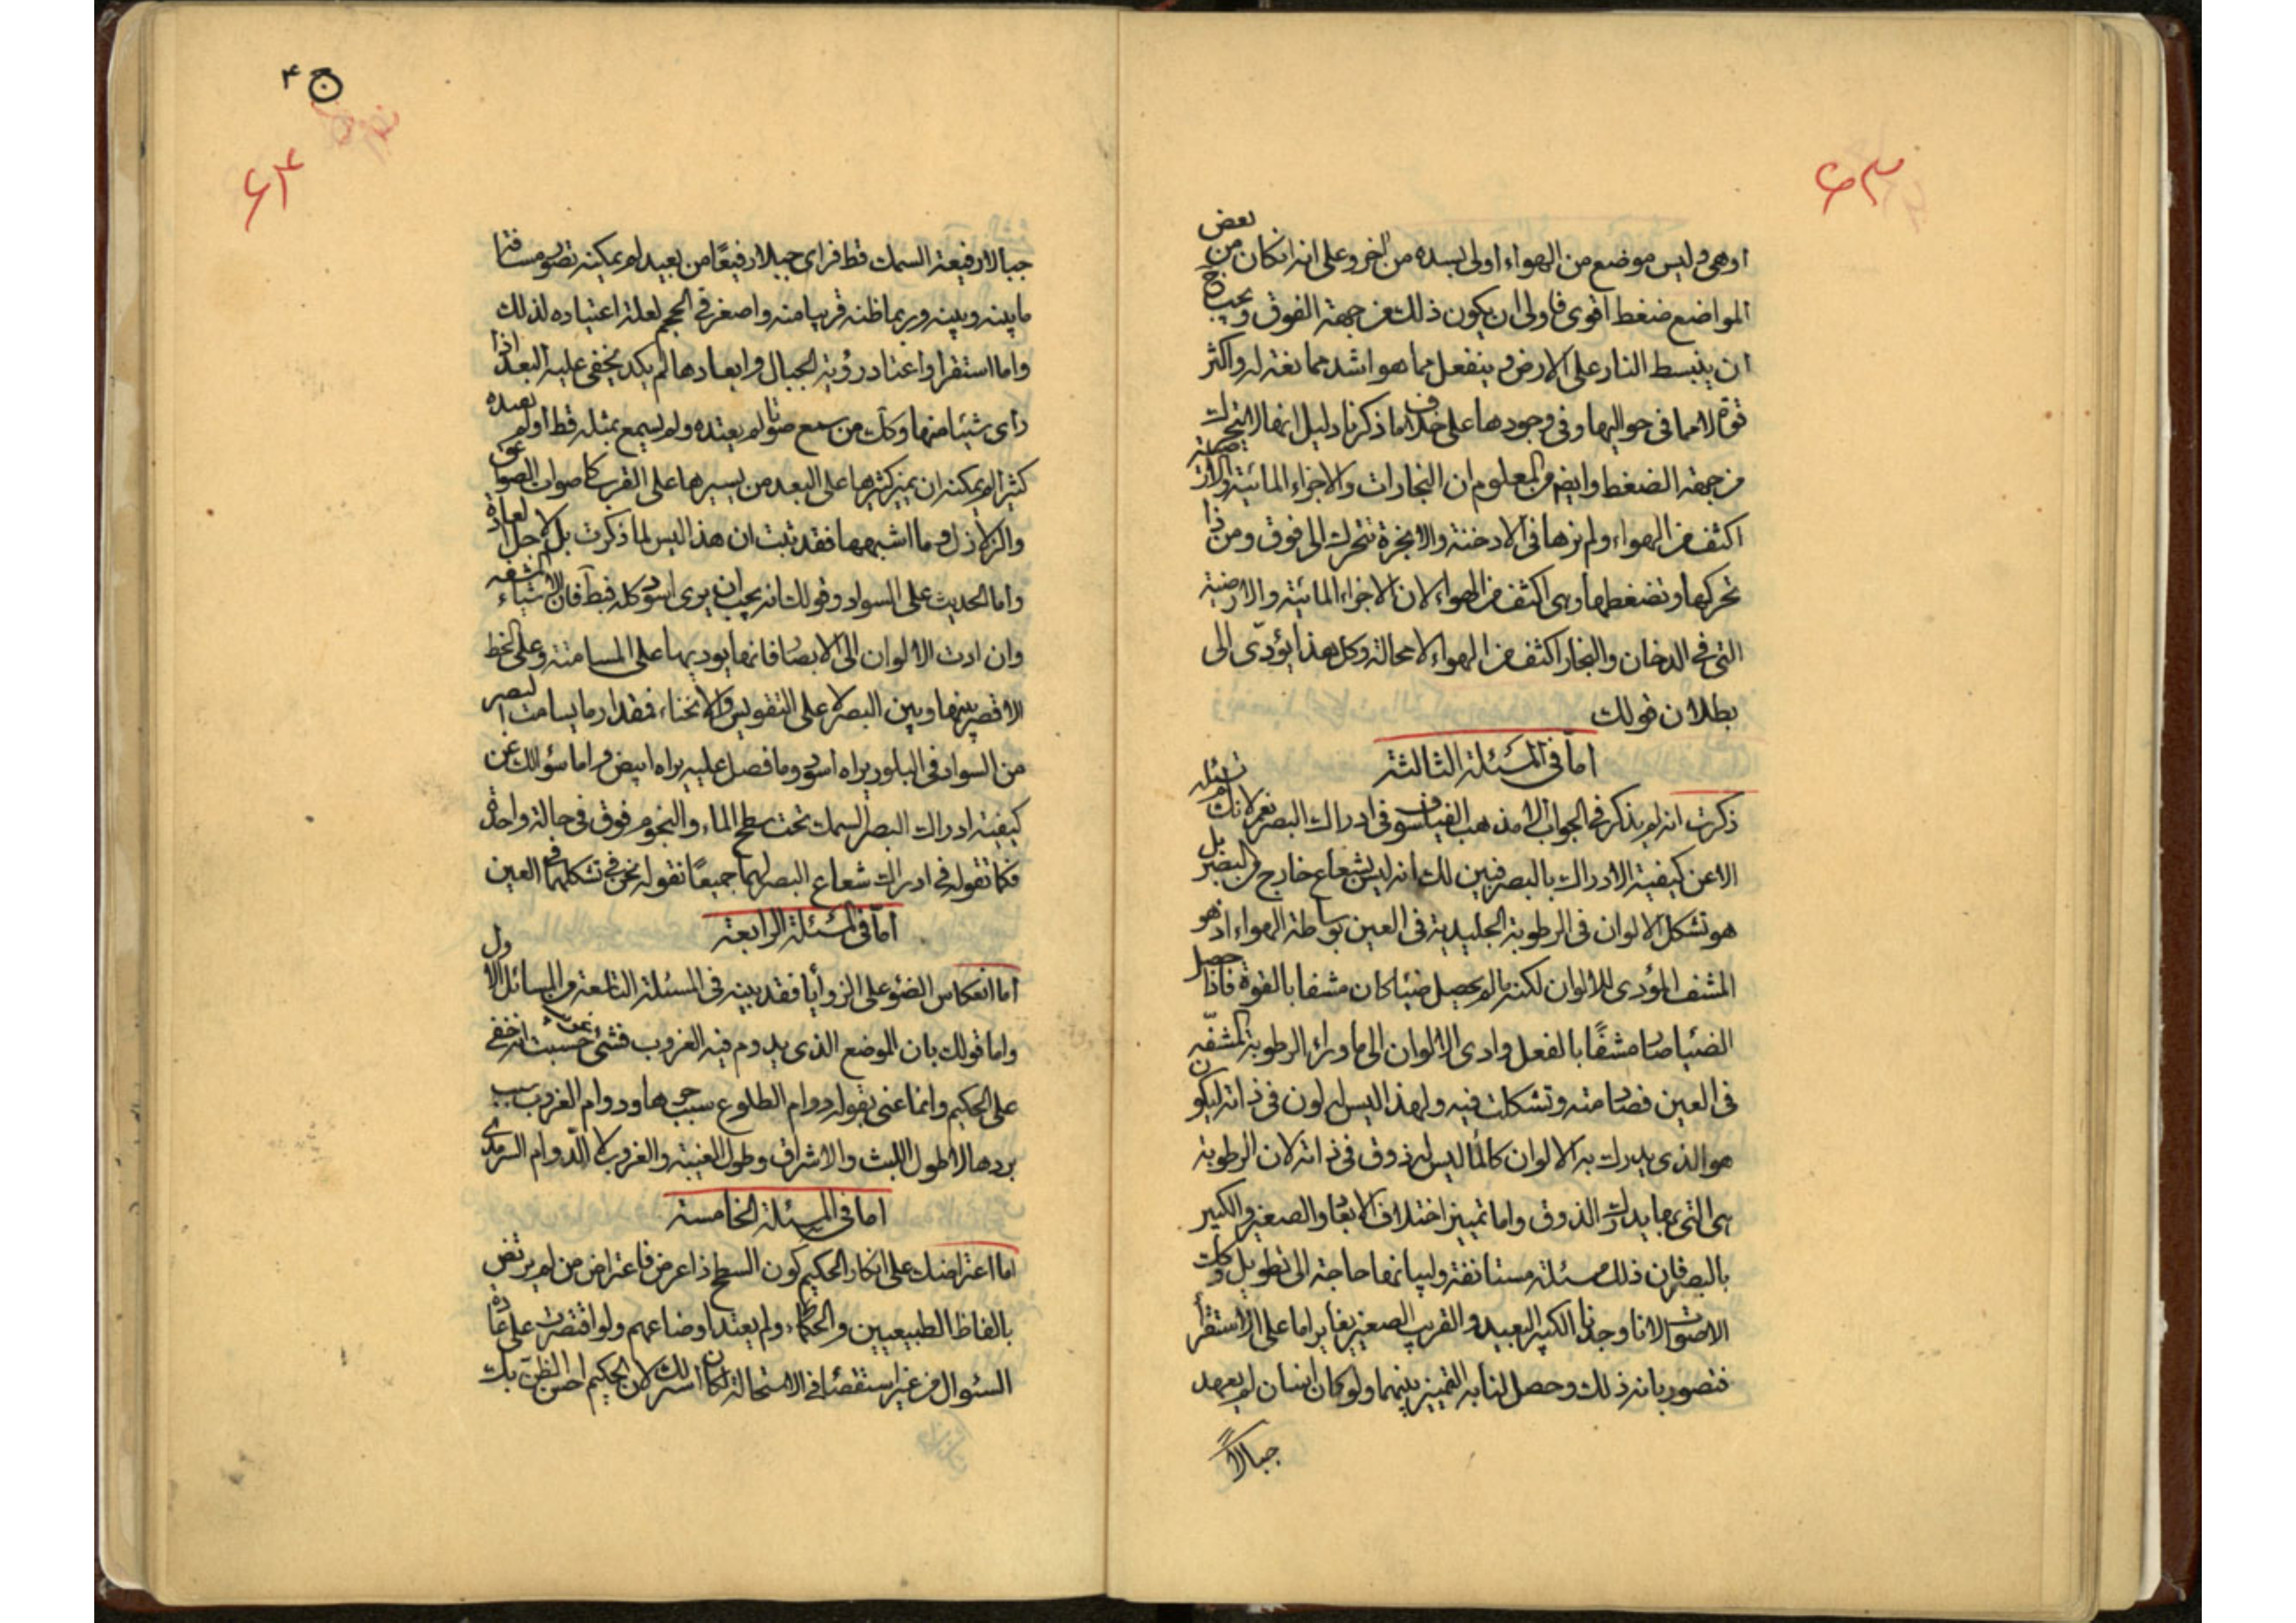 ۶۳
اوهى وليس موضع من الهواء اولى بسده من اخر وعلى انه انكان من بعض
المواضع ضغط اقوى فاولى ان يكون ذلك من جهة الفوق ويجب ح
ان ينبسط النار على الارض وينفعل مما هو اشد ممانعة له واكثر
قوة لا مما فى حواليها وفى وجودها على خلاف ما ذكرنا دليل انها لا تتحرك
من جهة الضغط وايضا من المعلوم ان البخارات والاجزاء المائية والارضية
اكثف من الهواء ولم نرها فى الادخنة والابخرة تتحرك الى فوق ومن ذا
تحركها وتضغطها وهى اكثف من الهواء لان الاجزاء المائية والارضية
التى فى الدخان والبخار اكثف من الهواء لا محالة وكل هذا يؤدّى الى
بطلان قولك
امّا فى المسئلة الثالثة
ذكرت انه لم يذكر فى الجواب الا مذهب الفيلسوف فى ادراك البصر نعم لانك لم تسئله
الا عن كيفية الادراك بالبصر فبين لك انه ليس بشعاع خارج من البصر بل
هو تشكل الالوان فى الرطوبة الجليدية فى العين بوساطة الهواء اذ هو
المشف المؤدى للالوان لكنه ما لم يحصل ضيئا كان مشفا بالقوة فاذا حصل
الضئيا صار مشفًا بالفعل وادى الالوان الى ما وراء الرطوبة المشفّه
فى العين فصار منه وتشكلت فيه ولهذا ليس له لون فى ذاته ليكون
هو الذى يدرك به الالوان كالماء ليس له ذوق فى ذاته لان الرطوبة
هى التى بها يدرك الذوق واما تمييز اختلاف الابعاد والصغير والكبير
بالبصر فان ذلك مسئلة مستانفة ولبيانها حاجة الى تطويل وكات
الاصوات لانا وجدنا الكبير البعيد والقريب الصغير يغاير اما على الاستقرأ
فتصور بانه ذلك وحصل لنا به التمييز بينهما ولو كان انسان لم يعهد
جبالاً
ج ۴
۶۴
جبالا رفيعة السمك قط فراى جبلا رفيعًا من بعيد لم يمكنه تصور مسافة
ما بينه وبينه وربما ظنه قريبا منه واصغر فى الحجم لعلة اعتياده لذلك
واما استقرا واعتاد رؤية الجبال وابعادها لم يكد يخفى عليه البعد اذا
رأى شيئا منها وكك من سمع صوتا لم يعتده ولم يسمع بمثله قط اولم بعده
كثيرا لم يمكنه ان يميز كثيرها على البعد من يسيرها على القرب كاصوات الصواعق
والزلازل وما اشبهها فقد ثبت ان هذا ليس لما ذكرت بل لاجل العادة
واما الحديث على السواد وقولك انه يجب ان يرى اسود كله فبط فان الاشياء المشفه
وان ادت الالوان الى الابصار فانما يوديها على المسامتة وعلى الخط
الاقصر بينها وبين البصر لا على التقويس والانحناء فقدار ما يسامت البصر
من السواد فى البلور يراه اسود وما فصل عليه يراه ابيض واما سؤالك عن
كيفية ادراك البصر السمك تحت سطح الماء والنجوم فوق فى حالة واحدة
فكما تقوله فى ادراك شعاع البصر لهما جميعًا نقوله نحن فى تشكلهما فى العين
امّا فى المسئلة الرابعة
اما انعكاس الضؤ على الزوايا فقد بينه فى المسئلة التاسعة من المسائل الاول
واما قولك بان الموضع الذى يدوم فيه الغروب فشئ حسبت انه خفى
على الحكيم وانما عنى بقوله دوام الطلوع سبب حرها ودوام الغروب سبب
بردها لا طول اللبث والاشراق وطول الغيبة والغروب لا الدّوام السرمدى
اما فى المسئلة الخامسة
اما اعتراضك على انكار الحكيم كون السطح ذا عرض فاعتراض من لم يرتض
بالفاظ الطبيعيين والحكماء ولم يعتد اوضاعهم ولو اقتصرت على عادة
السئوال من غير استقصاء فى الاستحالة لكان استر لك لان الحكيم احسن الظن بك